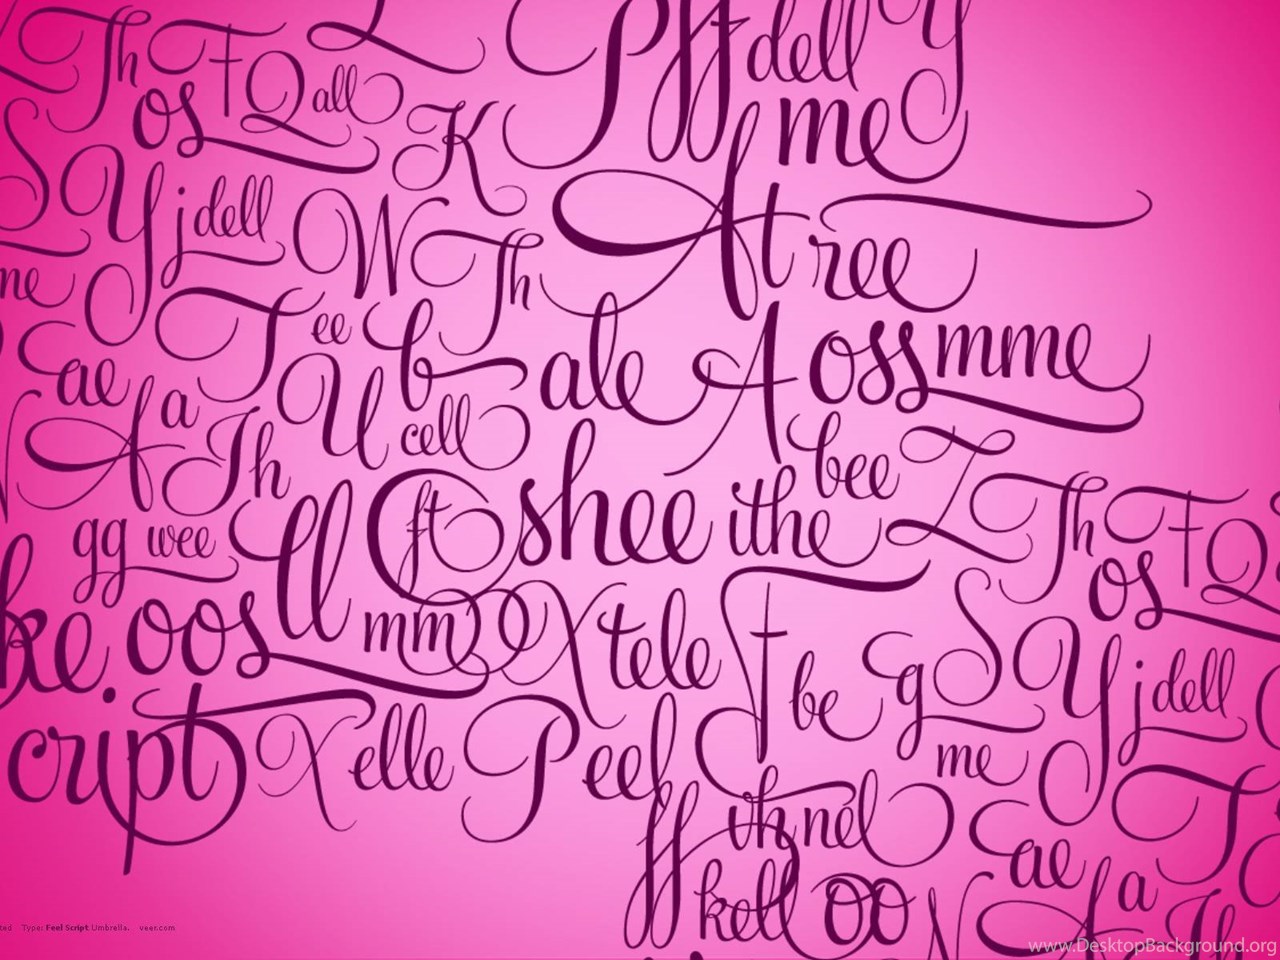 Th F Q all
os K
P ff dell y
me
S Y j dell W Th
At ree
me T ee b ale A oss mme
ae A a Th U cell
bee Z
gg wee ll ft shee ithe
Th F Q
os
ke oos mm X tele F be g S Y j dell
cript X elle P eel
me T
ff th nel
ae A a Th
kell oo N
ted Type: Feel Script Umbrella. veer.com
www.DesktopBackground.org